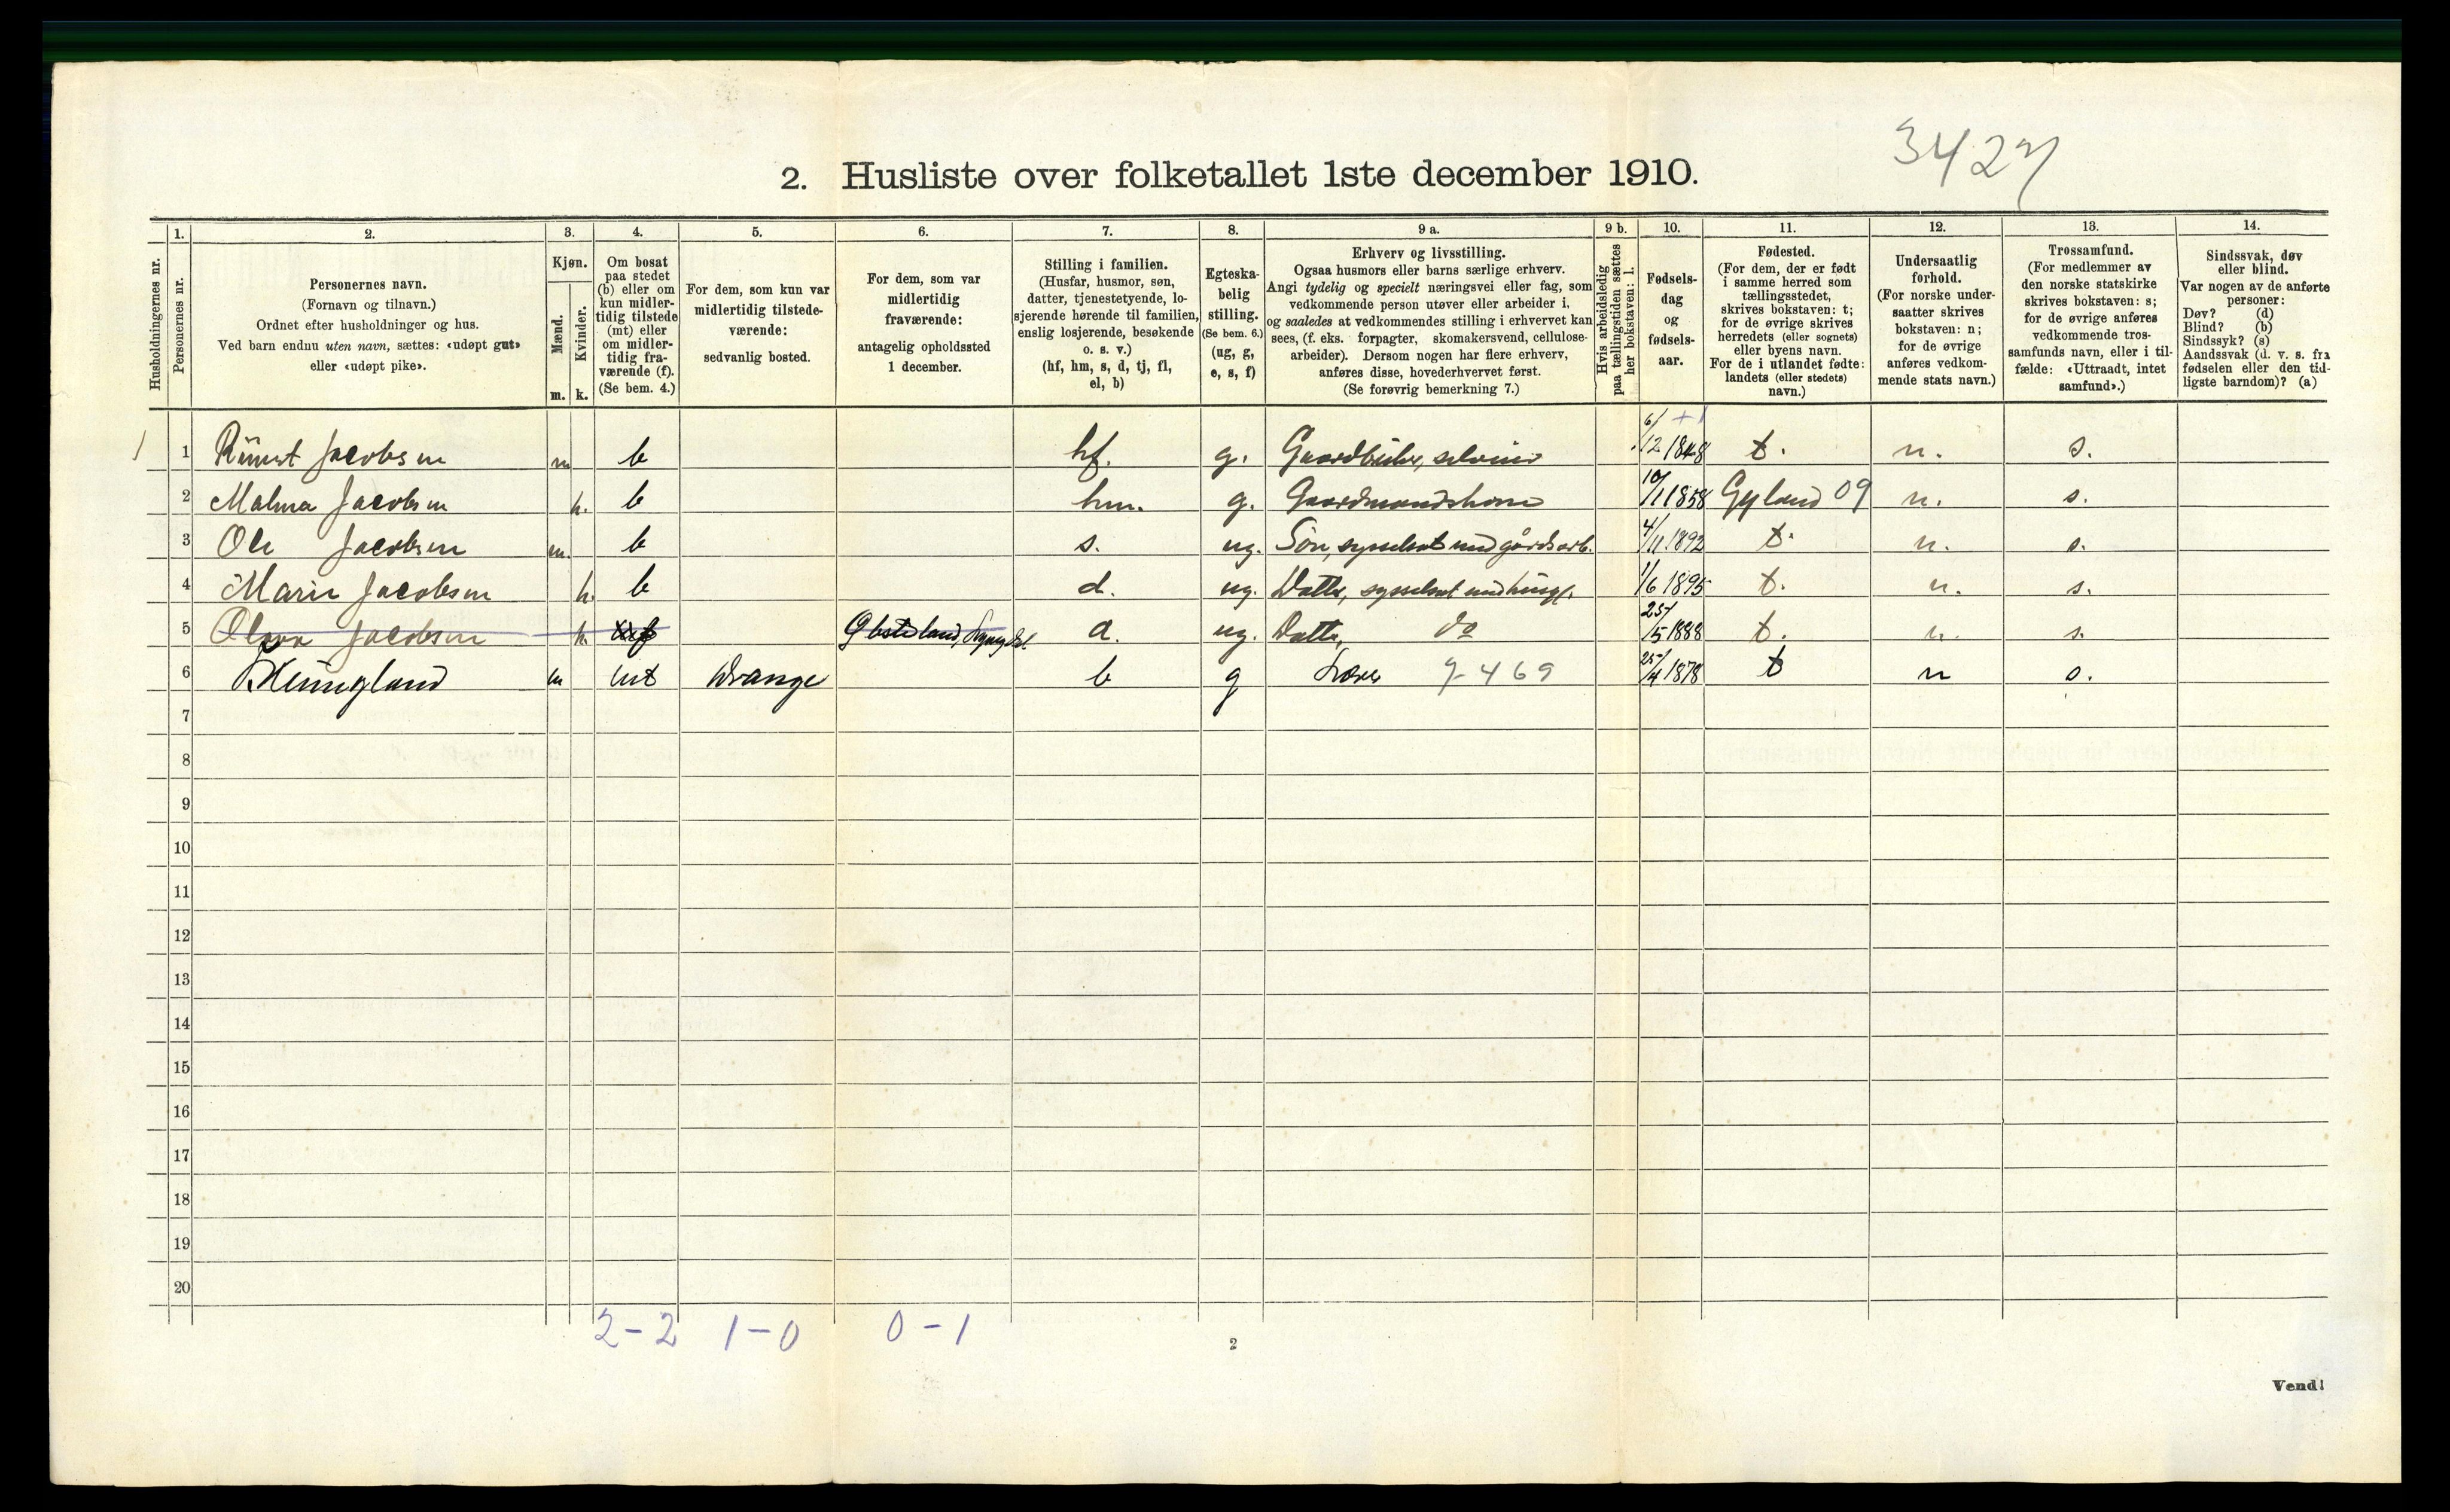 3427
2. Husliste over folketallet 1ste december 1910.
Husholdningernes nr.
1.
Personernes nr.
2.
Personernes navn.
(Fornavn og tilnavn.)
Ordnet efter husholdninger og hus.
Ved barn endnu uten navn, sættes: «udøpt gut»
eller «udøpt pike».
3.
Kjøn.
Mænd.
Kvinder.
m.
k.
4.
Om bosat
paa stedet
(b) eller om
kun midler-
tidig tilstede
(mt) eller
om midler-
tidig fra-
værende (f).
(Se bem. 4.)
5.
For dem, som kun var
midlertidig tilstede-
værende:
sedvanlig bosted.
6.
For dem, som var
midlertidig
fraværende:
antagelig opholdssted
1 december.
7.
Stilling i familien.
(Husfar, husmor, søn,
datter, tjenestetyende, lo-
sjerende hørende til familien,
enslig losjerende, besøkende
o. s. v.)
(hf, hm, s, d, tj, fl,
el, b)
8.
Egteska-
belig
stilling.
(Se bem. 6.)
(ug, g,
e, s, f)
9 a.
Erhverv og livsstilling.
Ogsaa husmors eller barns særlige erhverv.
Angi tydelig og specielt næringsvei eller fag, som
vedkommende person utøver eller arbeider i,
og saaledes at vedkommendes stilling i erhvervet kan
sees, (f. eks. forpagter, skomakersvend, cellulose-
arbeider). Dersom nogen har flere erhverv,
anføres disse, hovederhvervet først.
(Se forøvrig bemerkning 7.)
9 b.
Hvis arbeidsledig
paa tællingstiden sættes
her bokstaven: l.
10.
Fødsels-
dag
og
fødsels-
aar.
11.
Fødested.
(For dem, der er født
i samme herred som
tællingsstedet,
skrives bokstaven: t;
for de øvrige skrives
herredets (eller sognets)
eller byens navn.
For de i utlandet fødte:
landets (eller stedets)
navn.)
12.
Undersaatlig
forhold.
(For norske under-
saatter skrives
bokstaven: n;
for de øvrige
anføres vedkom-
mende stats navn.)
13.
Trossamfund.
(For medlemmer av
den norske statskirke
skrives bokstaven: s;
for de øvrige anføres
vedkommende tros-
samfunds navn, eller i til-
fælde: «Uttraadt, intet
samfund».)
14.
Sindssvak, døv
eller blind.
Var nogen av de anførte
personer:
Døv? (d)
Blind? (b)
Sindssyk? (s)
Aandssvak (d. v. s. fra
fødselen eller den tid-
ligste barndom)? (a)
1 1 Jacobsen m b hf. g. Gaardbruker, selveier 6/12 1848 t. n. s.
2 Malma Jacobsen k. b hm. g. Gaardmandskone 10/11 1858 Gyland 09 n. s.
3 Ole Jacobsen m. b s. ug. Søn, sysselsat med gårdsarb. 4/11 1892 t. n. s.
4 Marie Jacobsen k. b d. ug. Datter, sysselsat med husgj. 1/6 1895 t. n. s.
5 Jacobsen k. f d. ug. Datter, do 25/5 1888 t. n. s.
6 m mt Drange b g Lærer 7-469 25/4 1878 t n s.
7
8
9
10
11
12
13
14
15
16
17
18
19
20
2-2 1-0 0-1
2
Vend!